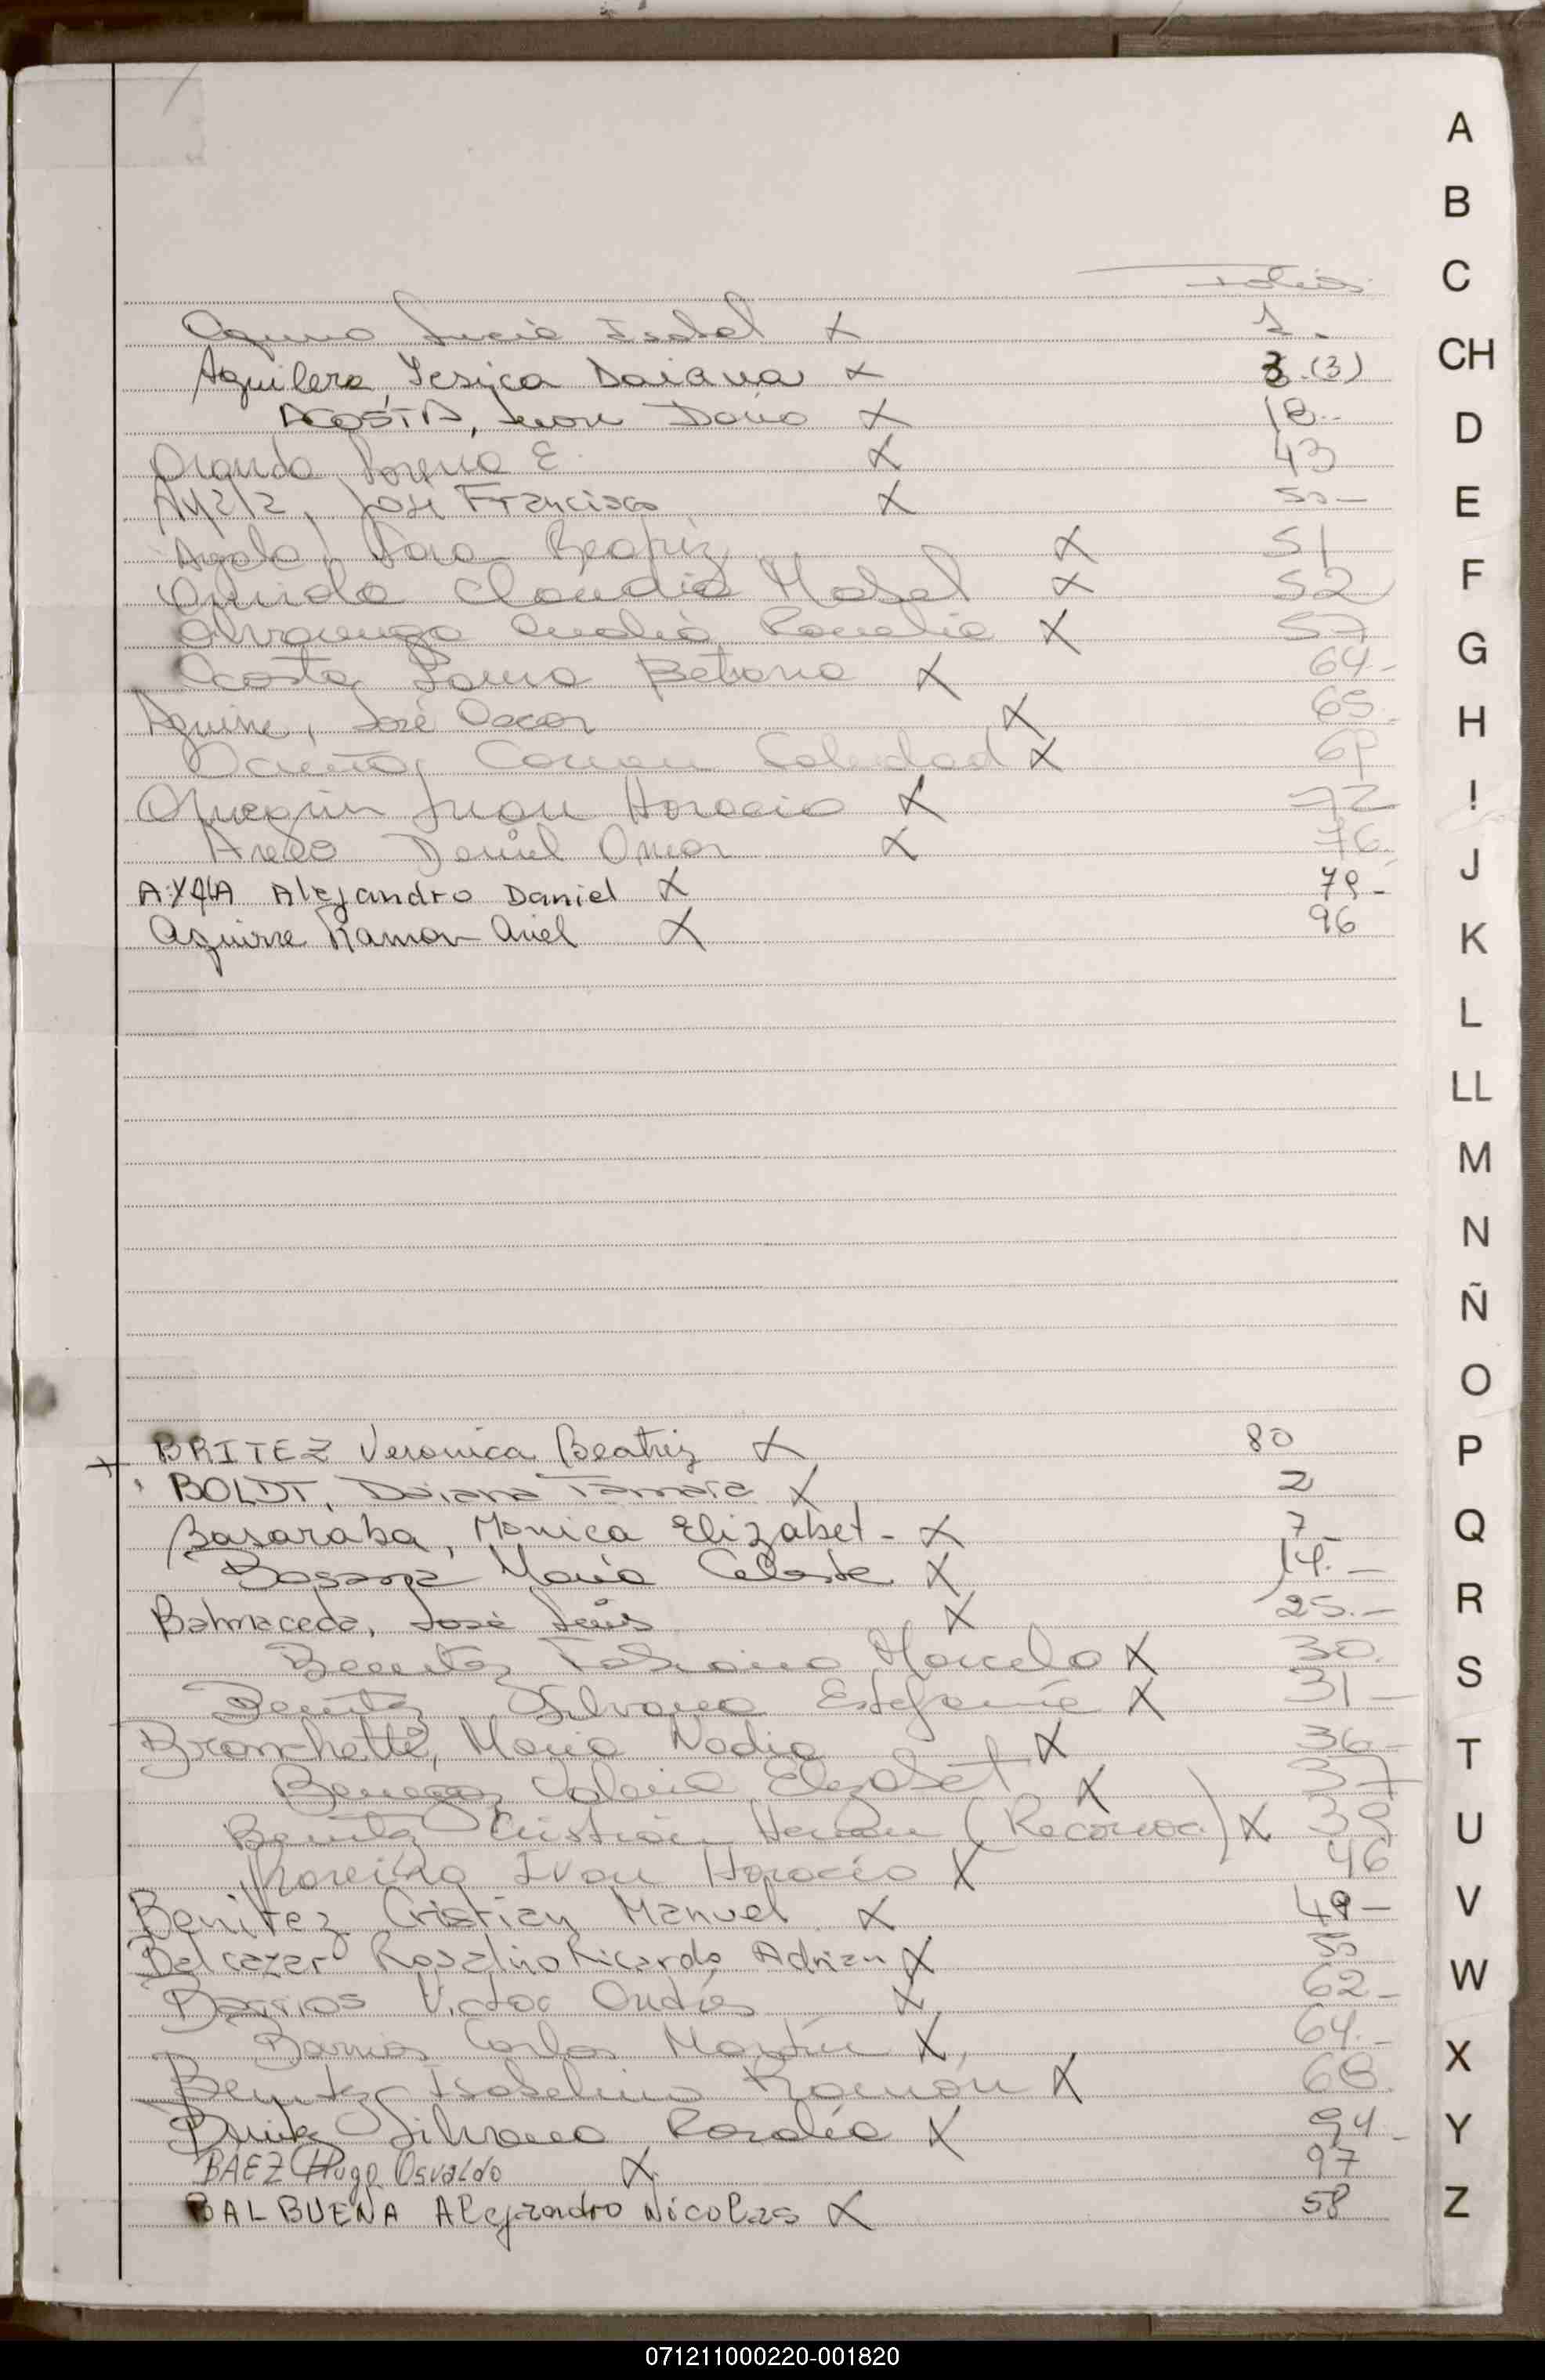 Folios
Aquino Lucia Isabel X 1.
Aguilera, Yesica Daiana X 3.(3)
ACOSTA, Juan Dario X 18.-
Lorena E. X 43
Ayala, José Francisco X 50-
Ayala, Sara Beatriz X 51
Claudia Mabel X 52
Alvarenga Analia Romelia X 57
Acosta, Laura Betiana X 64-
Aguirre, José Oscar X 65.
Carmen Soledad X 69
Juan Horacio X 72
Daniel Omar X 76.
AYALA Alejandro Daniel X 79-
Aguirre Ramon Ariel X 96
BRITEZ Veronica Beatriz X 80
BOLDT, Daiana Tamara X 2
Basaraba, Monica Elizabet- X 7
Maria Celeste X 14.-
Balmaceda, José Luis X 25.-
Benitez Fabiana Marcela X 30.
Benitez Silvana Estefanie X 31-
Bronchetti, Maria Nadia X 36-
Valeria Elizabet X 37
Benitez Cristian Hernan (Reconoc.) X 39
Ivan Horacio X 46
Benitez Cristian Manuel X 49-
Balcazar Rosalino Ricardo Adrian X 55
Barrios Victor Andrés X 62-
Barrios Carlos Martín X 64.-
Benitez Isabelino Ramón X 68.
Silvana Rosalía X 94-
BAEZ Hugo Osvaldo X 97
BALBUENA Alejandro Nicolas X 58
A
B
C
CH
D
E
F
G
H
I
J
K
L
LL
M
N
Ñ
O
P
Q
R
S
T
U
V
W
X
Y
Z
071211000220-001820